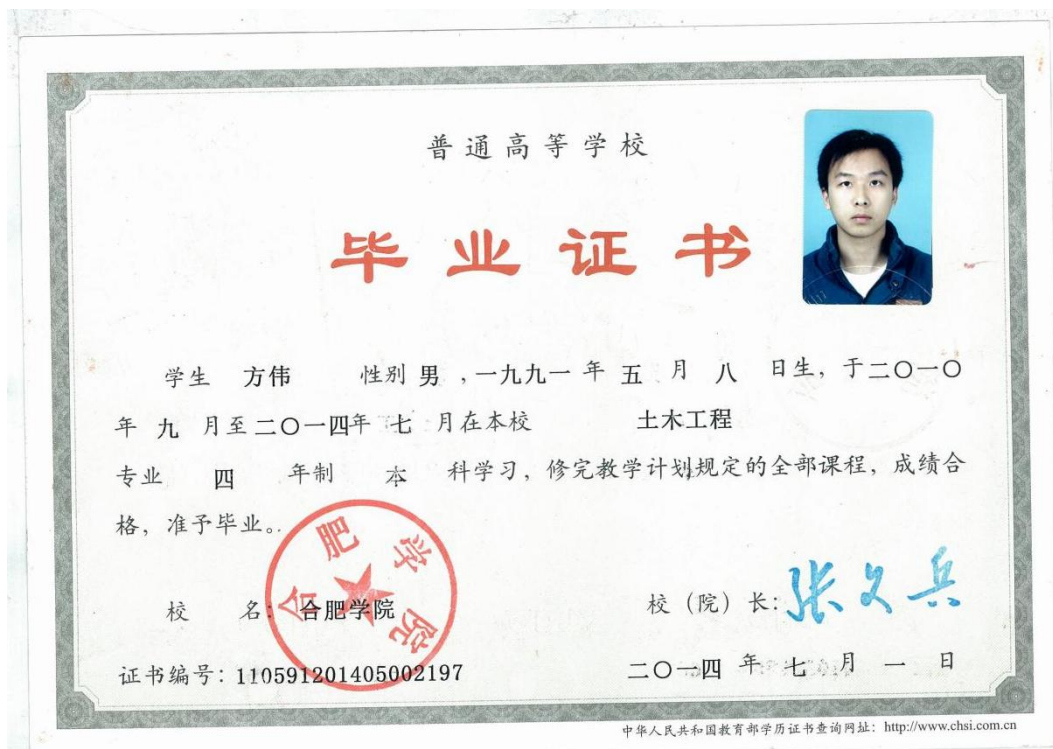 普通高等学校
毕业证书
学生 方伟 性别 男 ,一九九一 年 五 月 八 日生，于二〇一〇
年 九 月至二〇一四年 七 月在本校 土木工程
专业 四 年制 本 科学习，修完教学计划规定的全部课程，成绩合
格，准予毕业。
合肥学院
校 名：合肥学院
校（院）长：张文兵
证书编号：110591201405002197
二〇一四 年 七 月 一 日
中华人民共和国教育部学历证书查询网址：http://www.chsi.com.cn